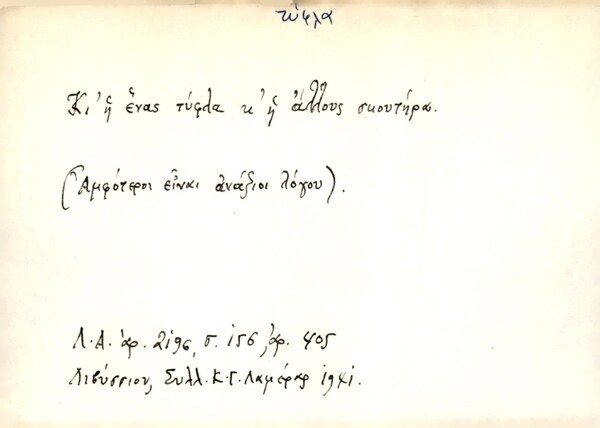 τύφλα
Κι' ἡ ἕνας τύφλα κ' ἡ ἄλλους σκουτήρα.
(Ἀμφότεροι εἶναι ἀνάξιοι λόγου).
Λ.Α. ἀρ. 2196, σ. 156, ἀρ. 405
Λιβύσσιον, Συλλ. Κ. Γ. Λαμέρας 1941.